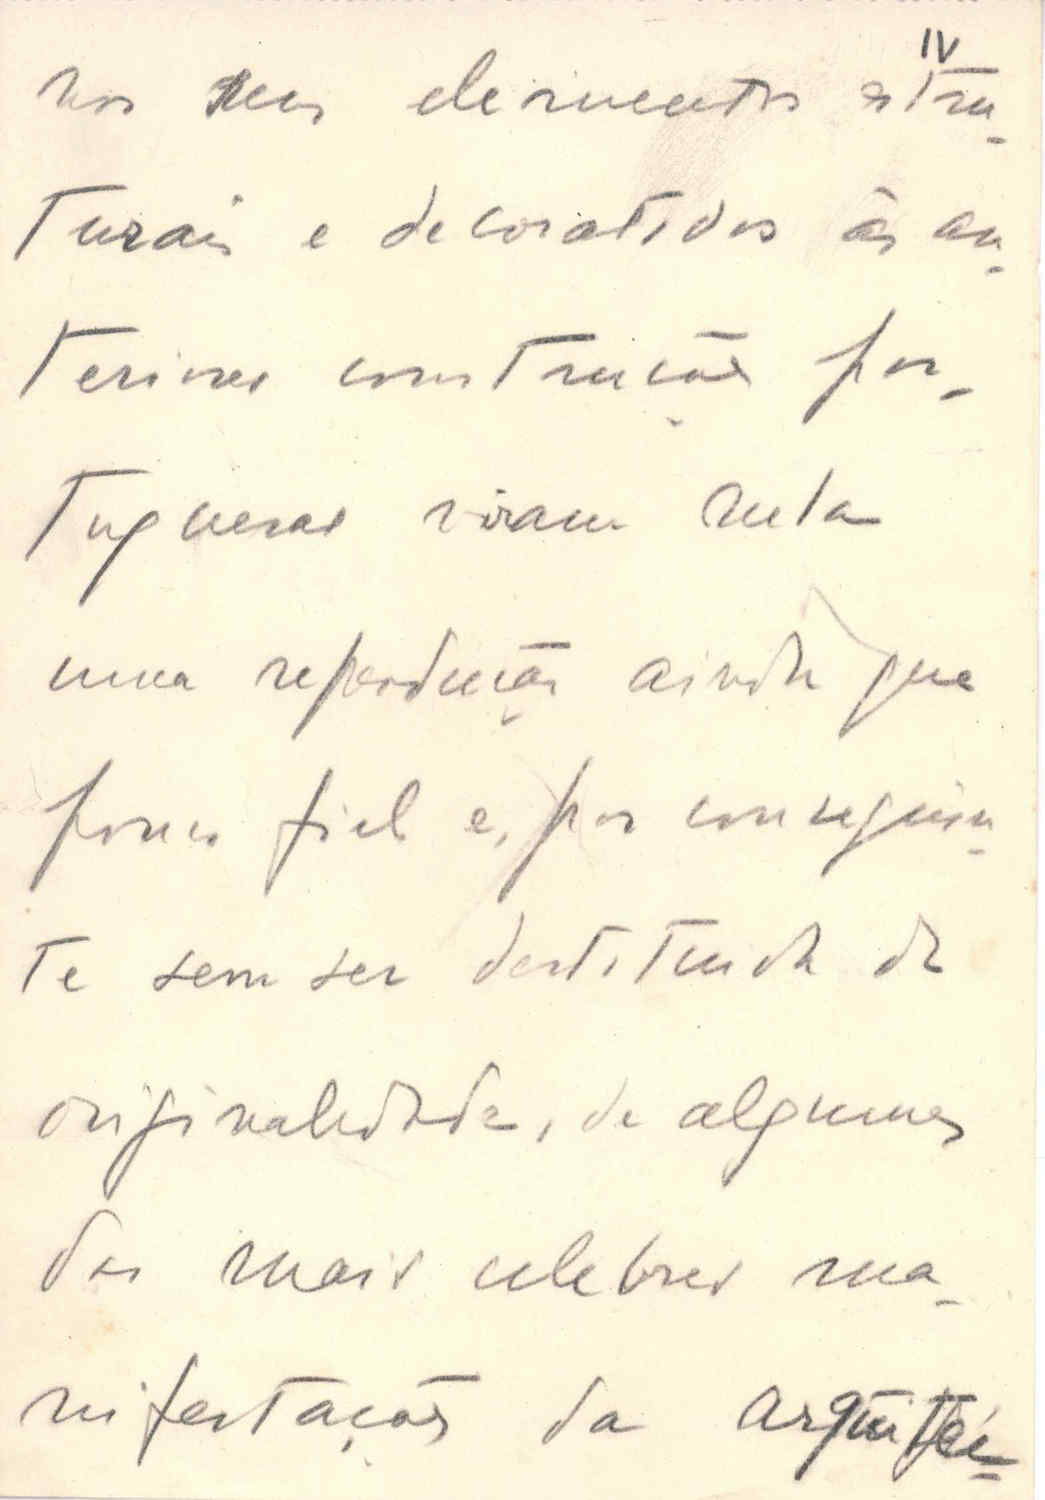 IV
nos seus elementos estru-
turais e decorativos às an-
teriores construções por-
tuguesas viram nela
uma reprodução ainda que
pouco fiel e, por conseguin-
te sem ser destituida de
originalidade, de algumas
das mais celebres ma-
nifestações da arquitéc-